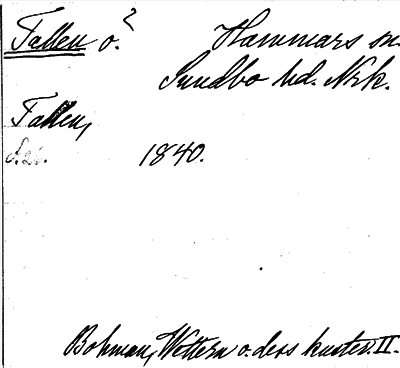 Fallen ö.²
Hammars sn.
Sundbo hd. Nrk.
Fallen,
1840.
Bohman, Wettern o. dess kuster. II.